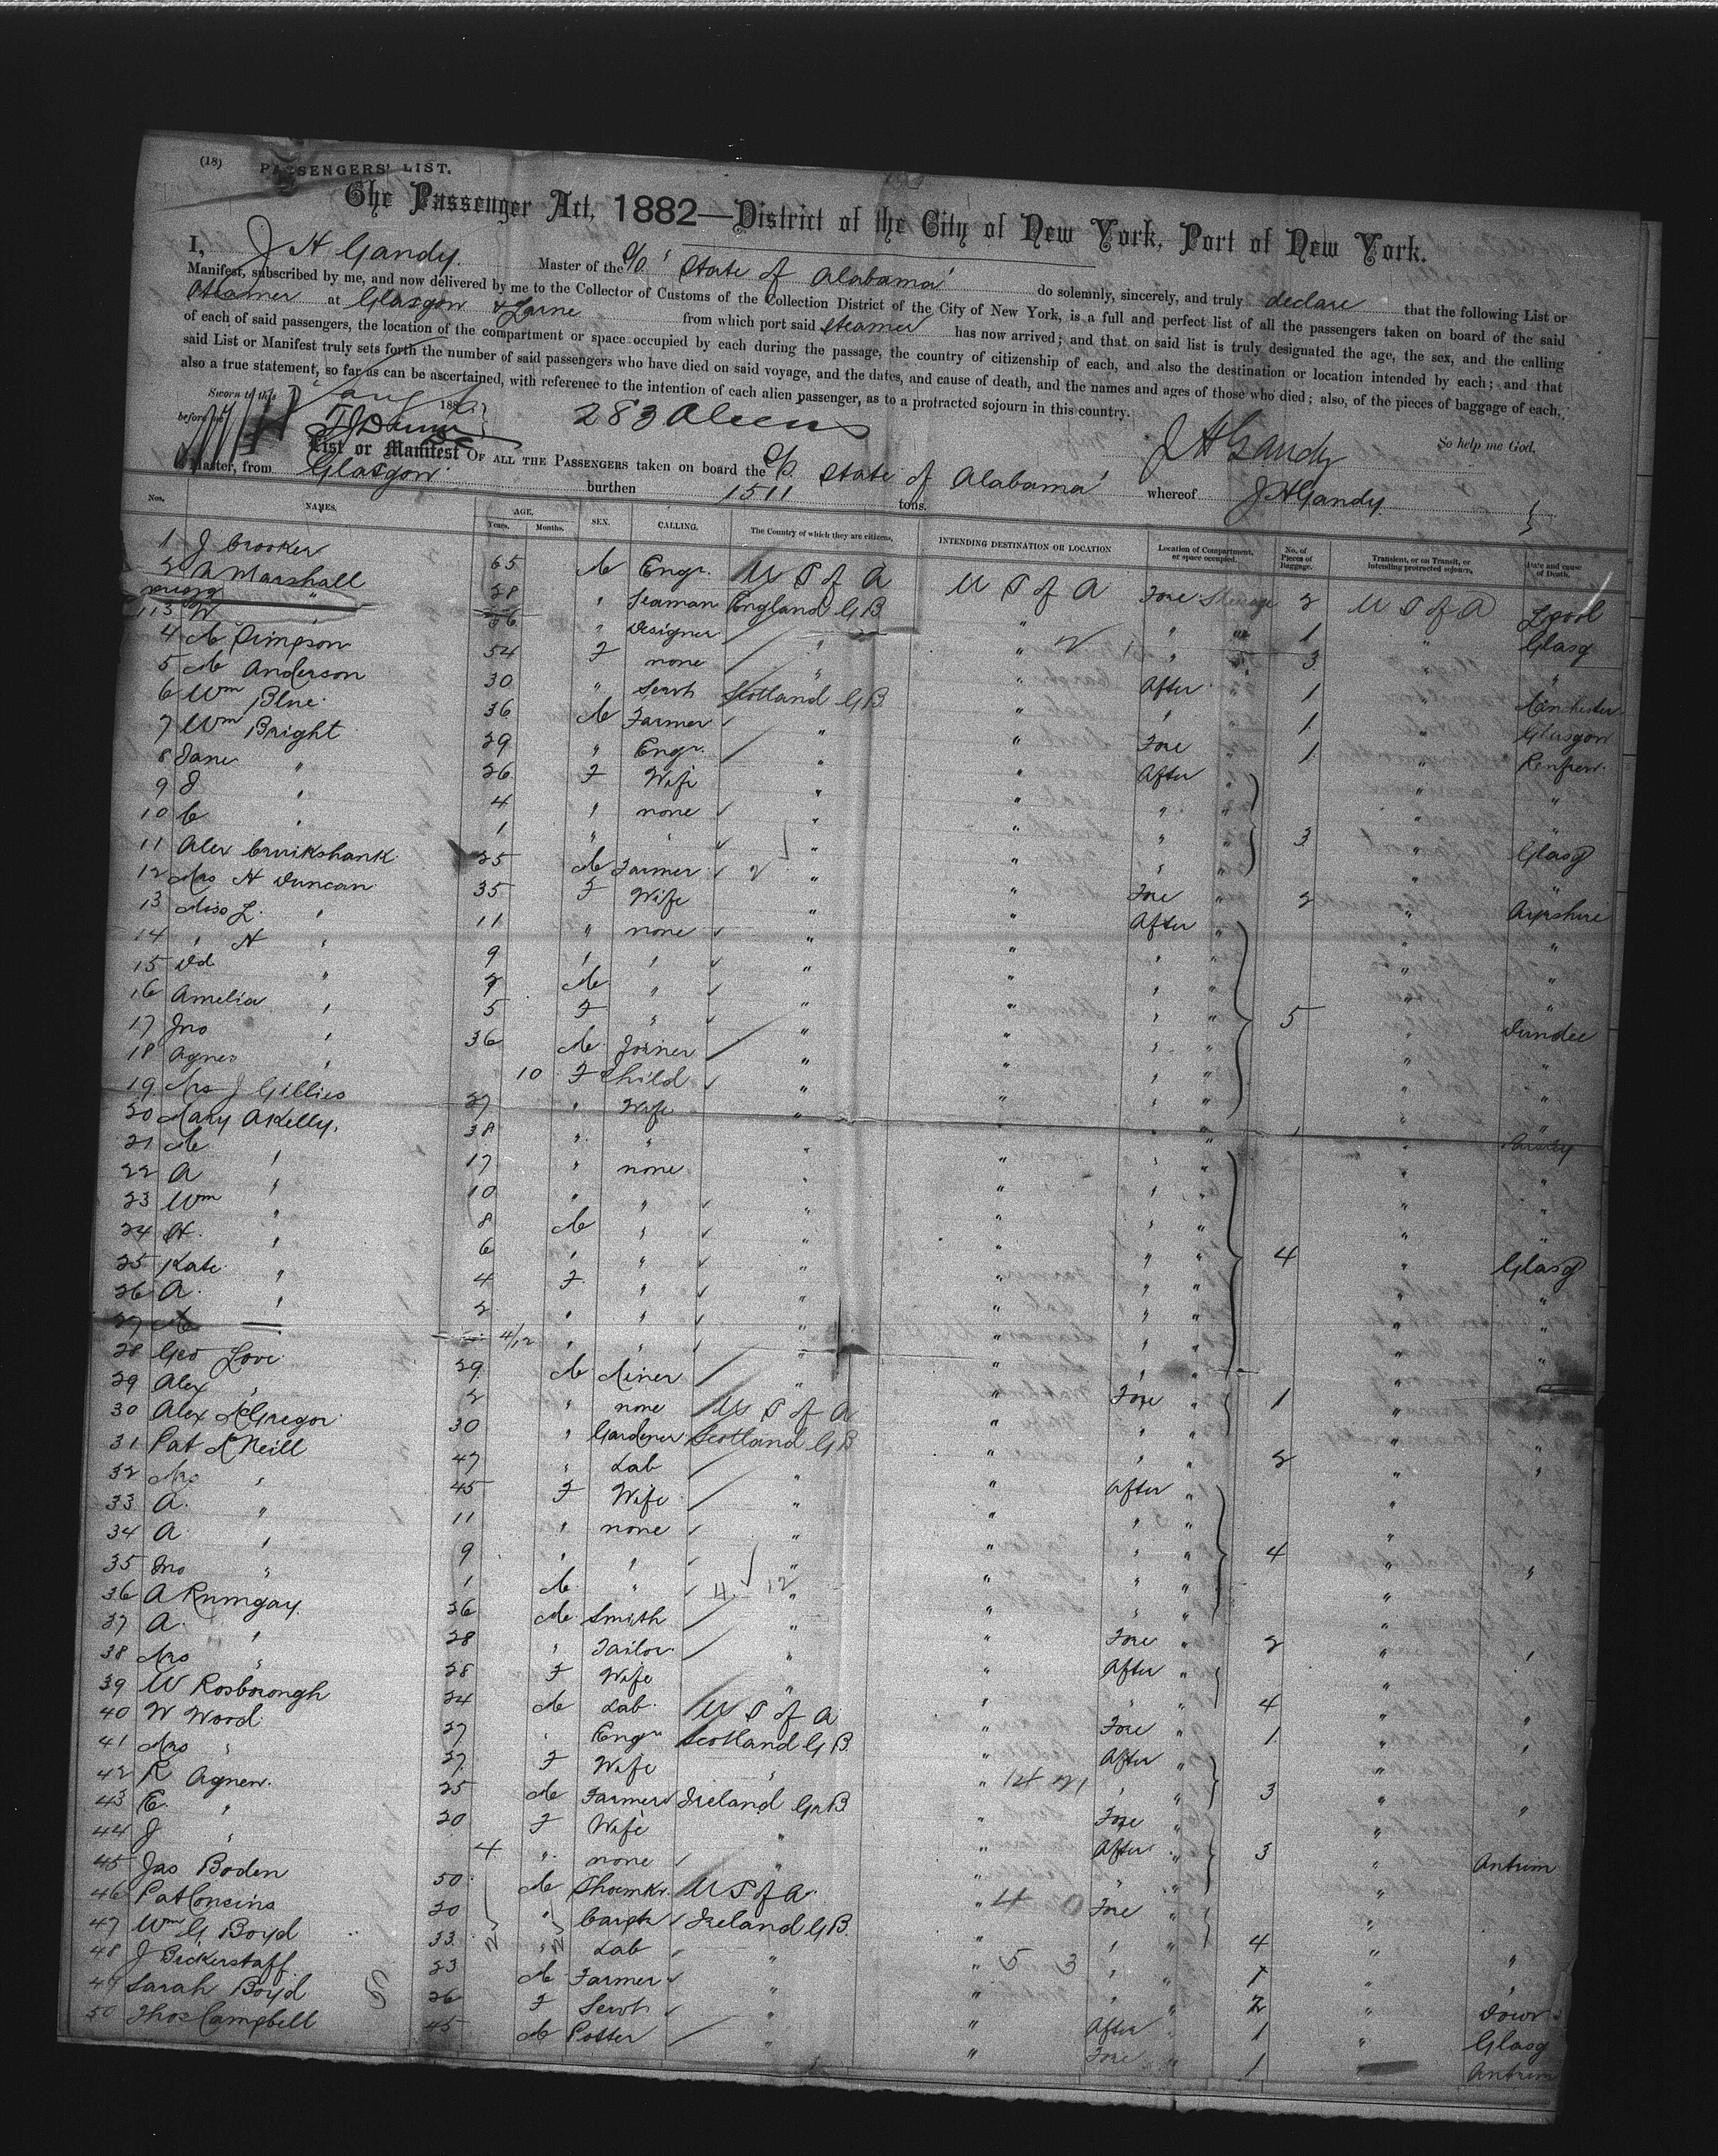 (18)
PASSENGERS' LIST.
The Passenger Act, 1882—District of the City of New York, Port of New York.
I, J H Gandy. Master of the S/S 'State of Alabama' do solemnly, sincerely, and truly declare that the following List or
Manifest, subscribed by me, and now delivered by me to the Collector of Customs of the Collection District of the City of New York, is a full and perfect list of all the passengers taken on board of the said
Steamer at Glasgow & Larne from which port said Steamer has now arrived; and that on said list is truly designated the age, the sex, and the calling
of each of said passengers, the location of the compartment or space occupied by each during the passage, the country of citizenship of each, and also the destination or location intended by each; and that
said List or Manifest truly sets forth the number of said passengers who have died on said voyage, and the dates, and cause of death, and the names and ages of those who died; also, of the pieces of baggage of each,
also a true statement, so far as can be ascertained, with reference to the intention of each alien passenger, as to a protracted sojourn in this country.
Sworn to this 188
before me 283 Aliens J H Gandy So help me God.
List or Manifest OF ALL THE PASSENGERS taken on board the S/S. State of Alabama' whereof J H Gandy
Master, from Glasgow burthen 1511 tons.
Nos. NAMES. AGE. Years. Months. SEX. CALLING. The Country of which they are citizens. INTENDING DESTINATION OR LOCATION Location of Compartment, or space occupied. No. of Pieces of Baggage. Transient, or on Transit, or intending protracted sojourn. Date and cause of Death.
1 J Crooker 65 M Engr. U S of A U S of A Fore Steerage 2 U S of A Lpool
2 A Marshall 28 " Seaman England G B " " " 1 " Glasg
3 W " " Designer " " " " 3 " "
4 M Simpson 54 F none " " After " 1 " Manchester
5 M Anderson 30 " Servt Scotland G B " " " 1 " Glasgow
6 Wm Blue 36 M Farmer " " Fore " 1 " Renfrew
7 Wm Bright 29 " Engr. " " After " " "
8 Jane " 26 F Wife " " " " " "
9 J " 4 " none " " " " 3 " Glasg
10 C " 1 " " " " " " " "
11 Alex Cruikshank 25 M Farmer " " Fore " 2 " Ayrshire
12 Mrs H Duncan 35 F Wife " " After " " "
13 Miss L. " 11 " none " " " " " "
14 " H " 9 " " " " " " " "
15 Dd " 7 M " " " " " 5 " Dundee
16 Amelia " 5 F " " " " " "
17 Jno " 36 M Joiner " " " " "
18 Agnes " 10 F Child " " " " " "
19 Mrs J Gillies 27 " Wife " " " " 1 "
20 Mary A Kelly. 38 " " " " " " " "
21 M " 17 " none " " " " " "
22 A " 10 " " " " " " " "
23 Wm " 8 M " " " " " 4 " Glasg
24 H. " 6 " " " " " " " "
25 Kate " 4 F " " " " " " "
26 A. " 2 " " " " " " " "
27 4/12 " " " " " "
28 Geo Love 29 M Miner " " Fore " 1 "
29 Alex " 2 " none U S of A " " " " "
30 Alex McGregor 30 " Gardener Scotland G B " " 2 " "
31 Pat McNeill 47 " Lab " " After " "
32 Mrs " 45 F Wife " " " " "
33 A. " 11 " none " " " " 4 " "
34 A " 9 " " " " " " "
35 Jno " 1 M " " " " " "
36 A Rumgay 26 M Smith " " Fore " 2 " "
37 A. " 28 " Tailor " " After " "
38 Mrs " 28 F Wife " " " " 4 " "
39 W Rosborough 24 M Lab U S of A " Fore " 1 " "
40 W Wood 27 " Engr Scotland G B. " After " "
41 Mrs " 27 F Wife " " " " 3 " "
42 R Agnew. 25 M Farmer Ireland G B " Fore " "
43 E. " 20 F Wife " " After " 3 " Antrim
44 J " 4 " none " " " " "
45 Jas Boden 50 M Shoemkr. U S of A " Fore " "
46 Pat Cousins 20 " Carptr Ireland G B. " " " 4 " "
47 Wm G Boyd 33 " Lab " " " " 1 " "
48 J Bickerstaff 23 M Farmer " " " " 2 " Down
49 Sarah Boyd 26 F Servt " " After " 1 " Glasg
50 Thos Campbell 45 M Potter " " Fore " 1 Antrim